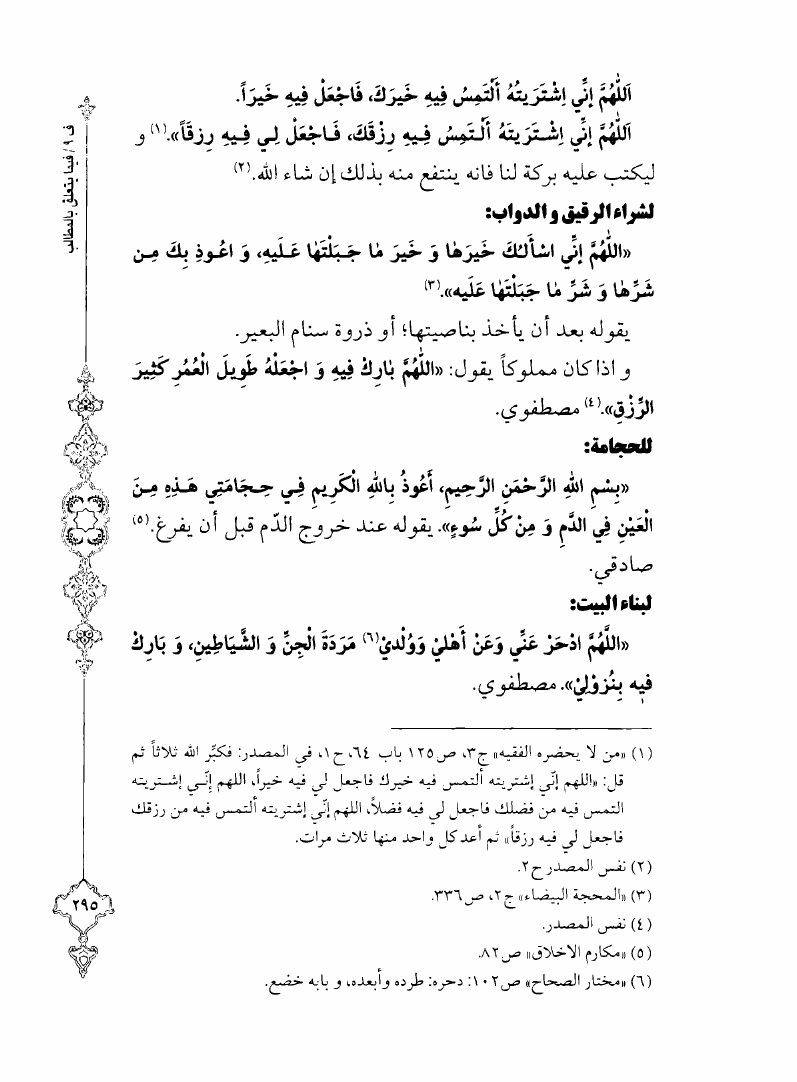 اَللّٰهُمَّ إنِّي اِشْتَرَيتُهُ أَلْتَمِسُ فيهِ خَيرَكَ، فَاجْعَلْ فِيهِ خَيرَاً.
اَللّٰهُمَّ إنِّي اِشْتَرَيتَهُ أَلْتَمِسُ فيهِ رِزْقَكَ، فَاجْعَلْ لي فيهِ رِزقَاً».(١) و
ليكتب عليه بركة لنا فانه ينتفع منه بذلك إن شاء الله.(٢)
لشراء الرقيق و الدواب:
«اللّٰهُمَّ إنِّي اسْأَلُكَ خَيرَهٰا وَ خَيرَ مٰا جَبَلْتَهٰا عَلَيهِ، وَ اعُوذِ بِكَ مِن
شَرِّهٰا وَ شَرِّ مٰا جَبَلْتَهٰا عَلَيه».(٣)
يقوله بعد أن يأخذ بناصيتها؛ أو ذروة سنام البعير.
و اذا كان مملوكاً يقول: «اللّٰهُمَّ بٰارِكْ فِيهِ وَ اجْعَلْهُ طَوِيلَ الْعُمُرِ كَثِيرَ
الرِّزْقِ».(٤) مصطفوي.
للحجامة:
«بِسْمِ اللهِ الرَّحْمَنِ الرَّحِيمِ، أَعُوذُ بِاللهِ الْكَرِيمِ فِي حِجَامَتِي هَذِهِ مِنَ
الْعَيْنِ فِي الدَّمِ وَ مِنْ كُلِّ سُوءٍ». يقوله عند خروج الدّم قبل أن يفرغ.(٥)
صادقي.
لبناء البيت:
«اللَّهُمَّ ادْحَرْ عَنِّي وَعَنْ أَهْلِيْ وَوُلْدِيْ(٦) مَرَدَةَ الْجِنِّ وَ الشَّيَاطِينِ، وَ بَارِكْ
فيهِ بِنُزوْلِيْ». مصطفوي.
(١) «من لا يحضره الفقيه» ج٣، ص١٢٥ باب ٦٤، ح١، في المصدر: فكبِّر الله ثلاثاً ثم
قل: «اللهم إنّي إشتريته ألتمس فيه خيرك فاجعل لي فيه خيراً، اللهم إنّي إشتريته
التمس فيه من فضلك فاجعل لي فيه فضلاً، اللهم إنّي إشتريته ألتمس فيه من رزقك
فاجعل لي فيه رزقاً» ثم أعد كل واحد منها ثلاث مرات.
(٢) نفس المصدر ح٢.
(٣) «المحجة البيضاء» ج٢، ص٣٣٦.
(٤) نفس المصدر.
(٥) «مكارم الاخلاق» ص٨٢.
(٦) «مختار الصحاح» ص١٠٢: دحره: طرده وأبعده، و بابه خضع.
ف ٩ / فيما يتعلق بالمطالب
٢٩٥